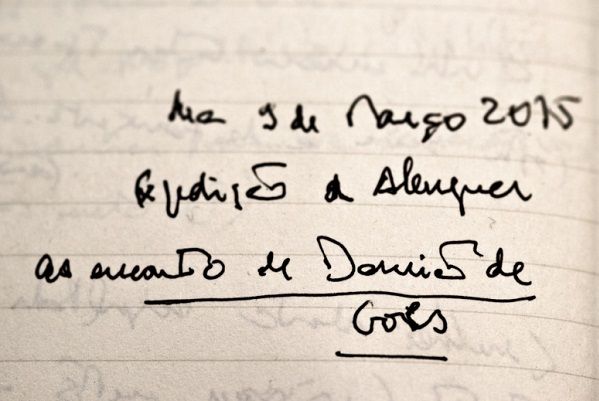 9 de Março 2015
Expedição a Alenquer
ao encontro de Damião de
Goes